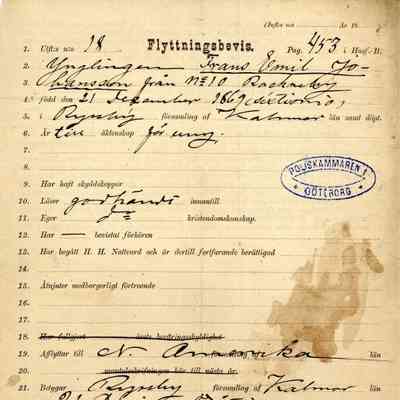 (Insfts n:o Är 18
1. Utfts: n:o 18 Flyttningsbevis. Pag. 453 i Husf.-B.
2. Ynglingen Frans Emil Jo-
3. hansson från No 10 Rockneby
4. född den 21 December 1869
5. i Ryssby församling af Kalmar län samt döpt.
6. Är till äktenskap för ung.
7.
8.
9. Har haft skyddskoppor
10. Läser godkändt innantill.
11. Eger do kristendomskunskap.
12. Har — bevistat förhören
13. Har begått H. H. Nattvard och är dertill fortfarande berättigad
14.
15. Åtnjuter medborgerligt förtroende
16.
17.
POLISKAMMAREN I
GÖTEBORG
18. Har fullgjort årets beväringsskyldighet
19. Afflyttar till N. Amerika län
20. mantalsskrifningen här till nästa år.
21. Betygar Ryssby församling af Kalmar län